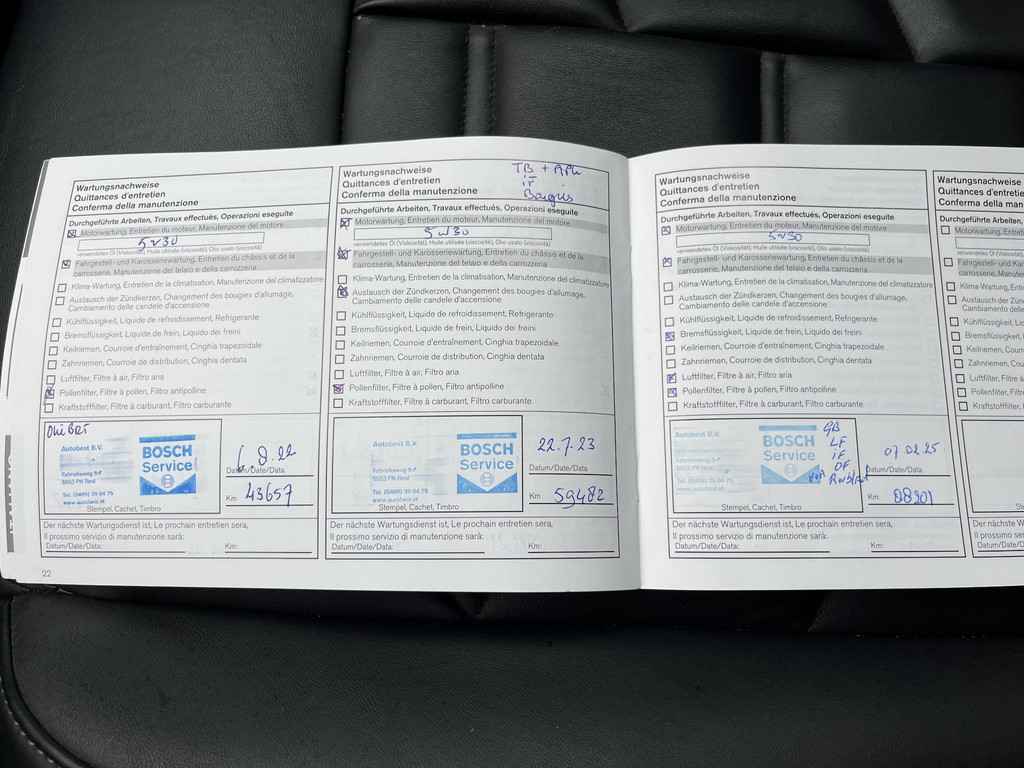 Wartungsnachweise
Quittances d'entretien
Conferma della manutenzione
Durchgeführte Arbeiten, Travaux effectués, Operazioni eseguite
Motorwartung, Entretien du moteur, Manutenzione del motore
5w30
verwendetes Öl (Viskosität), Huile utilisée (viscosité), Olio usato (viscosità)
Fahrgestell- und Karosseriewartung, Entretien du châssis et de la
carrosserie, Manutenzione del telaio e della carrozzeria
Klima-Wartung, Entretien de la climatisation, Manutenzione del climatizzatore
Austausch der Zündkerzen, Changement des bougies d'allumage,
Cambiamento delle candele d'accensione
Kühlflüssigkeit, Liquide de refroidissement, Refrigerante
Bremsflüssigkeit, Liquide de frein, Liquido dei freini
Keilriemen, Courroie d'entraînement, Cinghia trapezoidale
Zahnriemen, Courroie de distribution, Cinghia dentata
Luftfilter, Filtre à air, Filtro aria
Pollenfilter, Filtre à pollen, Filtro antipolline
Kraftstofffilter, Filtre à carburant, Filtro carburante
Autobest B.V.
BOSCH
Service
www.autobest.nl
Datum/Date/Data
43657
Km
Stempel, Cachet, Timbro
Der nächste Wartungsdienst ist, Le prochain entretien sera,
Il prossimo servizio di manutenzione sarà:
Datum/Date/Data:
Km:
22
Wartungsnachweise
Quittances d'entretien
Conferma della manutenzione
TB +
Durchgeführte Arbeiten, Travaux effectués, Operazioni eseguite
Motorwartung, Entretien du moteur, Manutenzione del motore
5w30
verwendetes Öl (Viskosität), Huile utilisée (viscosité), Olio usato (viscosità)
Fahrgestell- und Karosseriewartung, Entretien du châssis et de la
carrosserie, Manutenzione del telaio e della carrozzeria
Klima-Wartung, Entretien de la climatisation, Manutenzione del climatizzatore
Austausch der Zündkerzen, Changement des bougies d'allumage,
Cambiamento delle candele d'accensione
Kühlflüssigkeit, Liquide de refroidissement, Refrigerante
Bremsflüssigkeit, Liquide de frein, Liquido dei freini
Keilriemen, Courroie d'entraînement, Cinghia trapezoidale
Zahnriemen, Courroie de distribution, Cinghia dentata
Luftfilter, Filtre à air, Filtro aria
Pollenfilter, Filtre à pollen, Filtro antipolline
Kraftstofffilter, Filtre à carburant, Filtro carburante
Autobest B.V.
BOSCH
Service
www.autobest.nl
22.7.23
Datum/Date/Data
Km 59482
Stempel, Cachet, Timbro
Der nächste Wartungsdienst ist, Le prochain entretien sera,
Il prossimo servizio di manutenzione sarà:
Datum/Date/Data:
Km:
Wartungsnachweise
Quittances d'entretien
Conferma della manutenzione
Durchgeführte Arbeiten, Travaux effectués, Operazioni eseguite
Motorwartung, Entretien du moteur, Manutenzione del motore
5w30
verwendetes Öl (Viskosität), Huile utilisée (viscosité), Olio usato (viscosità)
Fahrgestell- und Karosseriewartung, Entretien du châssis et de la
carrosserie, Manutenzione del telaio e della carrozzeria
Klima-Wartung, Entretien de la climatisation, Manutenzione del climatizzatore
Austausch der Zündkerzen, Changement des bougies d'allumage,
Cambiamento delle candele d'accensione
Kühlflüssigkeit, Liquide de refroidissement, Refrigerante
Bremsflüssigkeit, Liquide de frein, Liquido dei freini
Keilriemen, Courroie d'entraînement, Cinghia trapezoidale
Zahnriemen, Courroie de distribution, Cinghia dentata
Luftfilter, Filtre à air, Filtro aria
Pollenfilter, Filtre à pollen, Filtro antipolline
Kraftstofffilter, Filtre à carburant, Filtro carburante
Autobest B.V.
BOSCH
Service
LF
OF
07.02.25
Datum/Date/Data
Km
Stempel, Cachet, Timbro
Der nächste Wartungsdienst ist, Le prochain entretien sera,
Il prossimo servizio di manutenzione sarà:
Datum/Date/Data:
Km:
Wartungsnachweise
Quittances d'entretien
Conferma della man
Durchgeführte Arbeiten
Motorwartung, En
Fahrgestell- und
carrosserie, Man
Klima-Wartung
Austausch der
Cambiamento
Kühlflüssigkeit
Bremsflüssig
Keilriemen, C
Zahnriemen
Luftfilter, Filt
Pollenfilter,
Kraftstofffil
Der nächste W
Il prossimo se
Datum/Date/Data